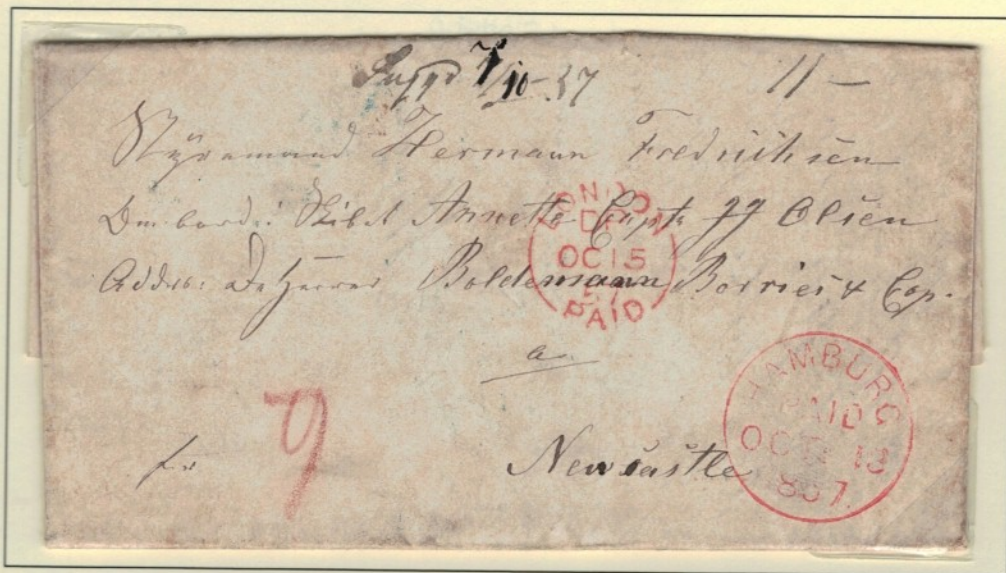 7/10-57 11-
Styrmand Hermann Fredrichsen
Ombord i Skibet Annette Captn JJ Olsen
Addrs: De Herrer Boldemann Borries & Cop.
a
fr Newcastle
9
LONDON
OC 15
57
PAID
HAMBURG
PAID
OCT 13
1857.